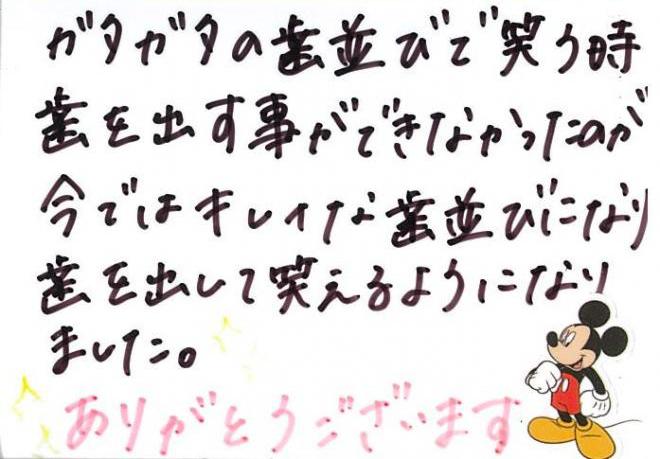 ガタガタの歯並びで笑う時
歯を出す事ができなかったのが
今ではキレイな歯並びになり
歯を出して笑えるようになり
ました。
ありがとうございます